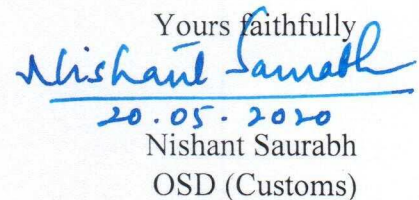 Yours faithfully
Nishant Saurabh
20.05.2020
Nishant Saurabh
OSD (Customs)